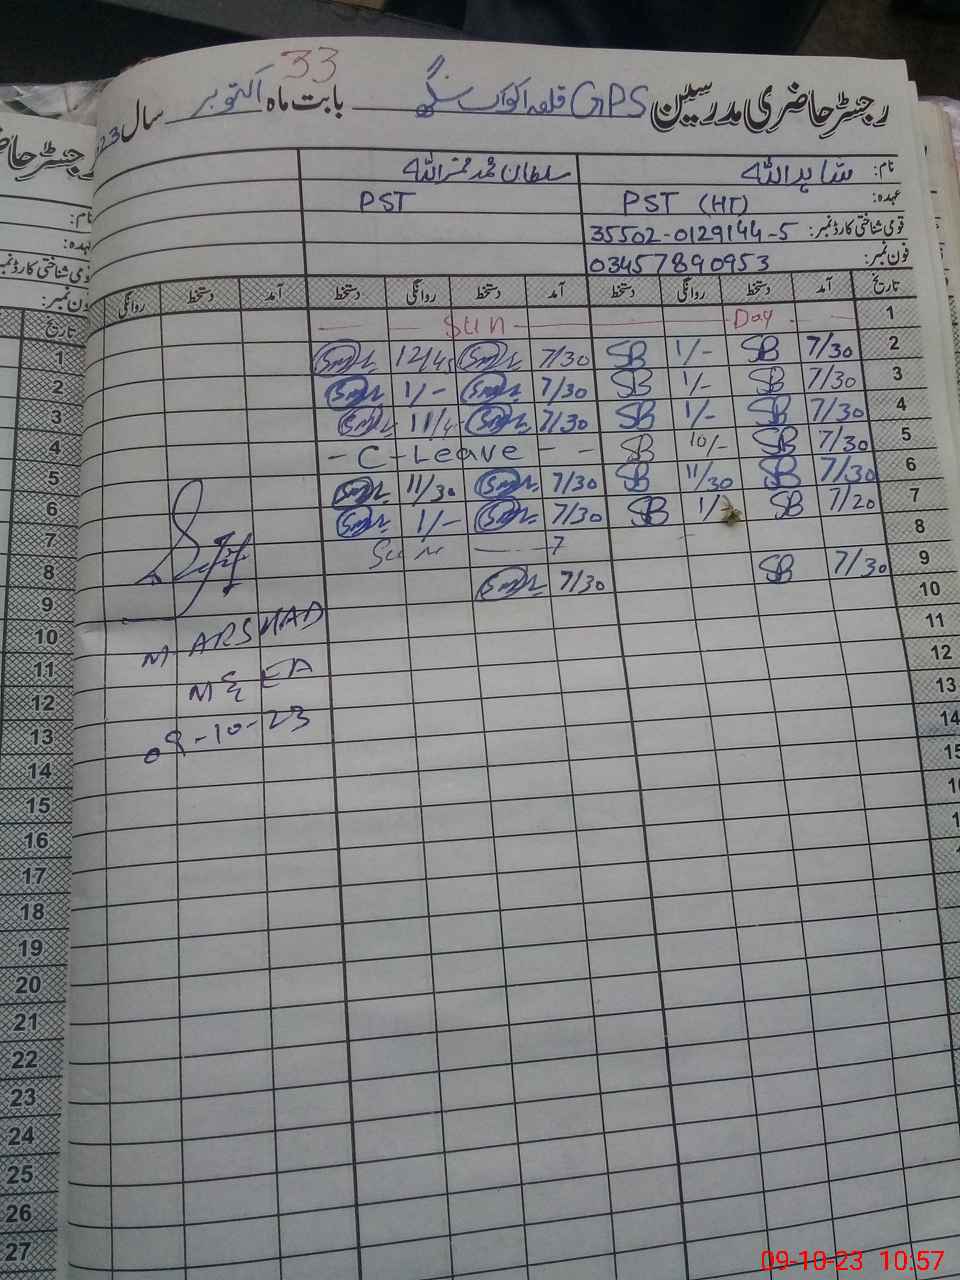 33
رجسٹر حاضری مدرسین GPS قلعہ اکواب سنگھ بابت ماہ اکتوبر سال 23
نام: شاہد اللہ سلطان محمد
عہدہ: PST (HT) PST
قومی شناختی کارڈ نمبر: 35502-0129144-5
فون نمبر: 03457890953
تاریخ آمد دستخط روانگی دستخط آمد دستخط روانگی دستخط آمد دستخط روانگی
1 Sun Day
2 7/30 SB 1/- SB 7/30 12/45
3 7/30 SB 1/- SB 7/30 1/-
4 7/30 SB 1/- SB 7/30
5 7/30 SB 10/- SB - C-Leave - -
6 7/30 SB 11/30 SB 7/30 11/30
7 7/20 SB 1/- SB 7/30 1/-
8
9 7/30 SB 7/30
10
11
12
13
14
15
M. ARSHAD
M & EA
09-10-23
رجسٹر حاضری
نام:
عہدہ:
قومی شناختی کارڈ نمبر:
فون نمبر:
تاریخ
1
2
3
4
5
6
7
8
9
10
11
12
13
14
15
16
17
18
19
20
21
22
23
24
25
26
27
09-10-23 10:57